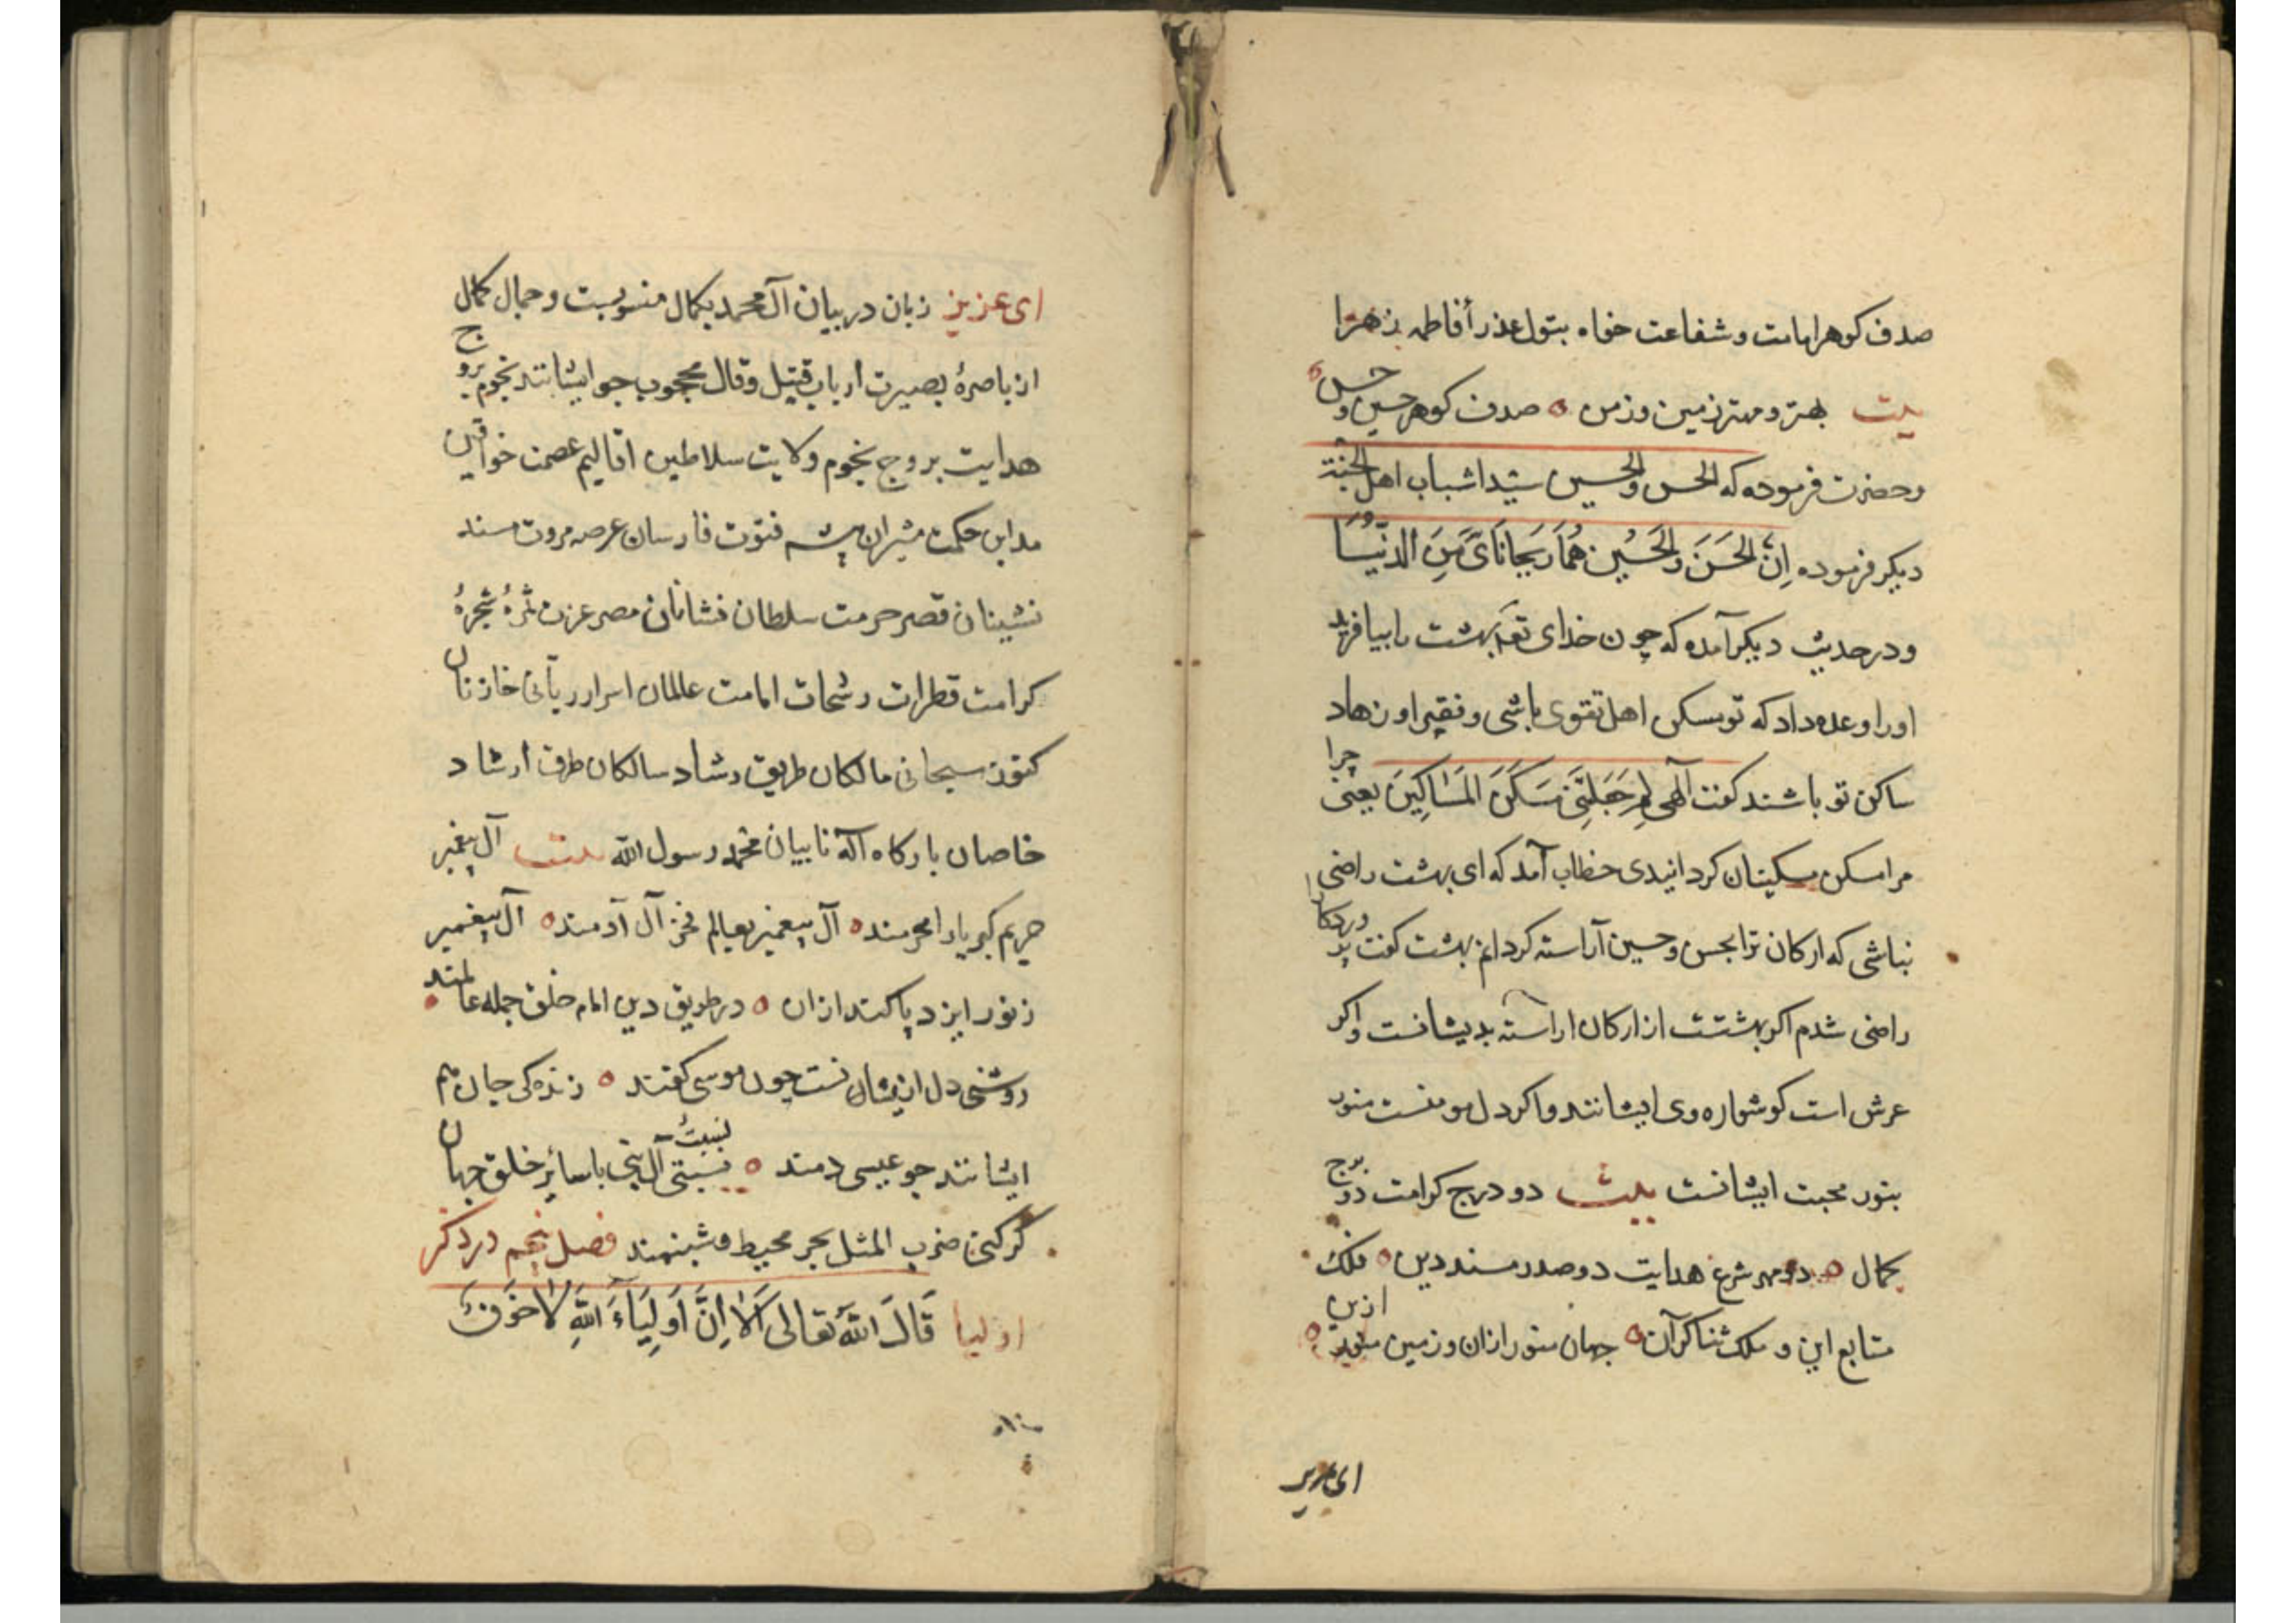 صدف کوهر امامت و شفاعت خواه بتول عذرأ فاطمه زهرا
بیت بهتر و مهتر زمین و زمن صدف کوهر حسین و حسن
وحضرت فرموده که الحسن والحسین سیدا شباب اهل الجنة
دیکر فرموده اِنَّ الحَسَنَ وَالحَسُین هُمَا رَیحَانَتَایَ مِنَ الدّنیَا
ودر حدیث دیکر آمده که چون خدای تعَم بهشت را بیافرید
اورا وعده داد که تو مسکن اهل تقوی باشی و فقیر او نهاد
ساکن تو باشند کفت آلهی لِمَ جَعَلتَنی مَسکَنَ المَسَاکِینَ یعنی چرا
مرا مسکن مسکینان کردانیدی خطاب آمد که ای بهشت راضی
نباشی که ارکان ترا بحسن و حسین آراسته کردانم بهشت کفت
راضی شدم اکر بهشتت از ارکان اراسته بدیشانست واکر
عرش است کوشواره وی ایشانند واکر دل مومنست منور
بنور محبت ایشانست بیت دو درج کرامت دو برج
کمال دو مهر شرع هدایت دو صدر مسند دین فلک
متابع این و ملک ثناکر آن جهان منور ازان و زمین منور ازین
ای عزیز
ای عزیز زبان در بیان آل محمد بکمال منسوبست و جمال کمال
از باصرهٔ بصیرت ارباب قیل وقال محجوب جو ایشانند نجوم بروج
هدایت بروج نجوم ولایت سلاطین اقالیم عصمت خواقین
مداین حکمت شیران بیشه فتوّت فارسان عرصه مروت مسند
نشینان قصر حرمت سلطان نشانان مصر عزت ثمرهٔ شجرهٔ
کرامت قطرات رشحات امامت عالمان اسرار ربّانی خازنان
کنوز سبحانی مالکان طریق رشاد سالکان طرق ارشاد
خاصان بارکاه آله نایبان محمد رسول الله بیت آل پیغمبر
حریم کبریا را محرمند آل پیغمبر بعالم فخر آل آدمند آل پیغمبر
ز نور ایزد پاکند ازان در طریق دین امام خلق جمله عالمند
روشنی دل از ایشان نست چون موسی کفند زنده کی جان هم
ایشانند جو عیسی دمند نسبت آل نبی با سائر خلق جهان
کر کنی ضرب المثل بحر محیط و شبنمند فصل پنجم در ذکر
اولیا قَالَ اللّهُ تعَالی اَلاَ اِنَّ اَولِیَاءَ اللّهِ لاَ خَوفٌ